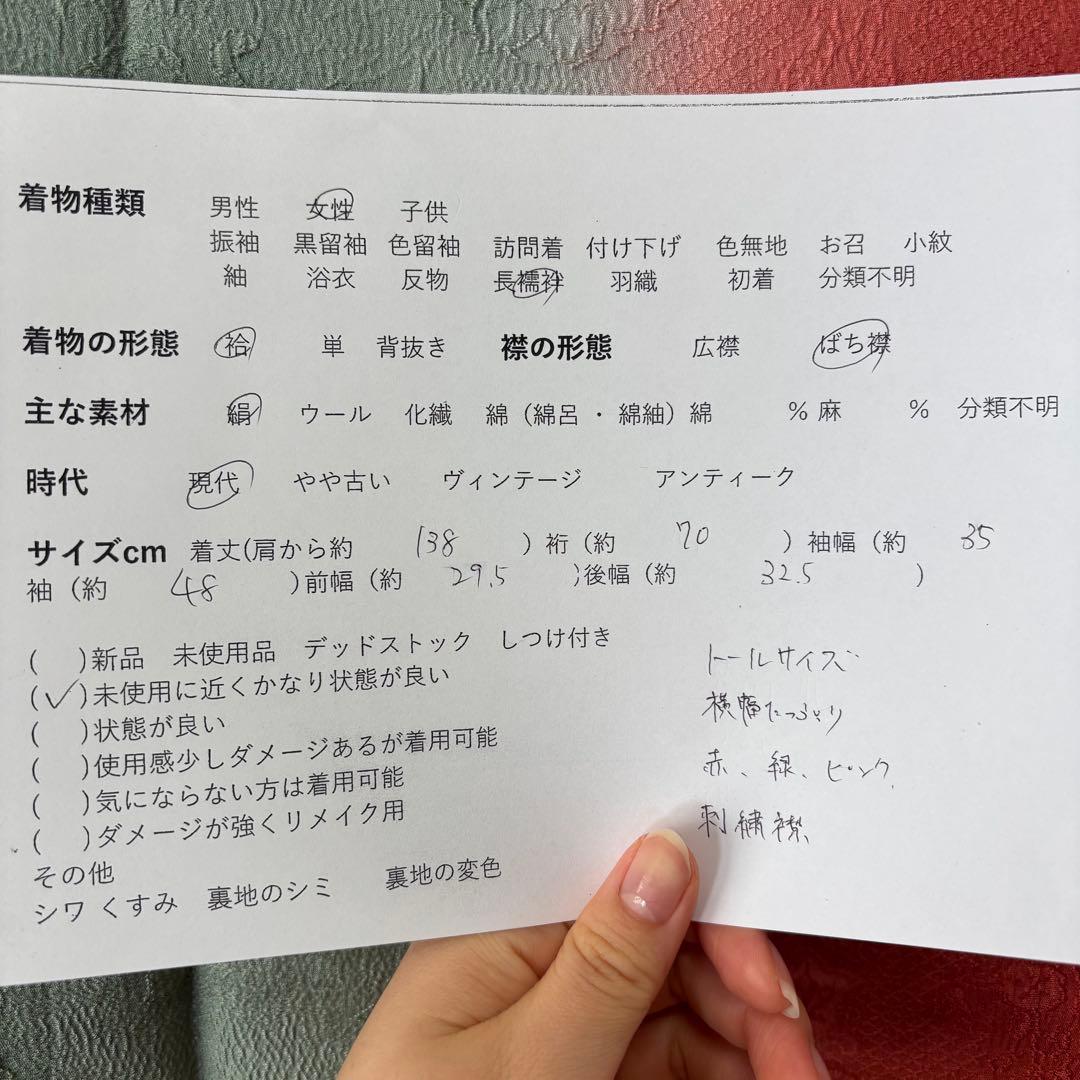 着物種類 男性 女性 子供
振袖 黒留袖 色留袖 訪問着 付け下げ 色無地 お召 小紋
紬 浴衣 反物 長襦袢 羽織 初着 分類不明
着物の形態 袷 単 背抜き 襟の形態 広襟 ばち襟
主な素材 絹 ウール 化繊 綿（綿呂・綿紬）綿 % 麻 % 分類不明
時代 現代 やや古い ヴィンテージ アンティーク
サイズcm 着丈(肩から約 138 ）裄（約 70 ）袖幅（約 35
袖（約 48 ）前幅（約 29.5 ）後幅（約 32.5 ）
( )新品 未使用品 デッドストック しつけ付き
(✓)未使用に近くかなり状態が良い
( )状態が良い
( )使用感少しダメージあるが着用可能
( )気にならない方は着用可能
( )ダメージが強くリメイク用
その他
シワ くすみ 裏地のシミ 裏地の変色
トールサイズ
横幅たっぷり
赤、緑、ピンク
刺繍襟